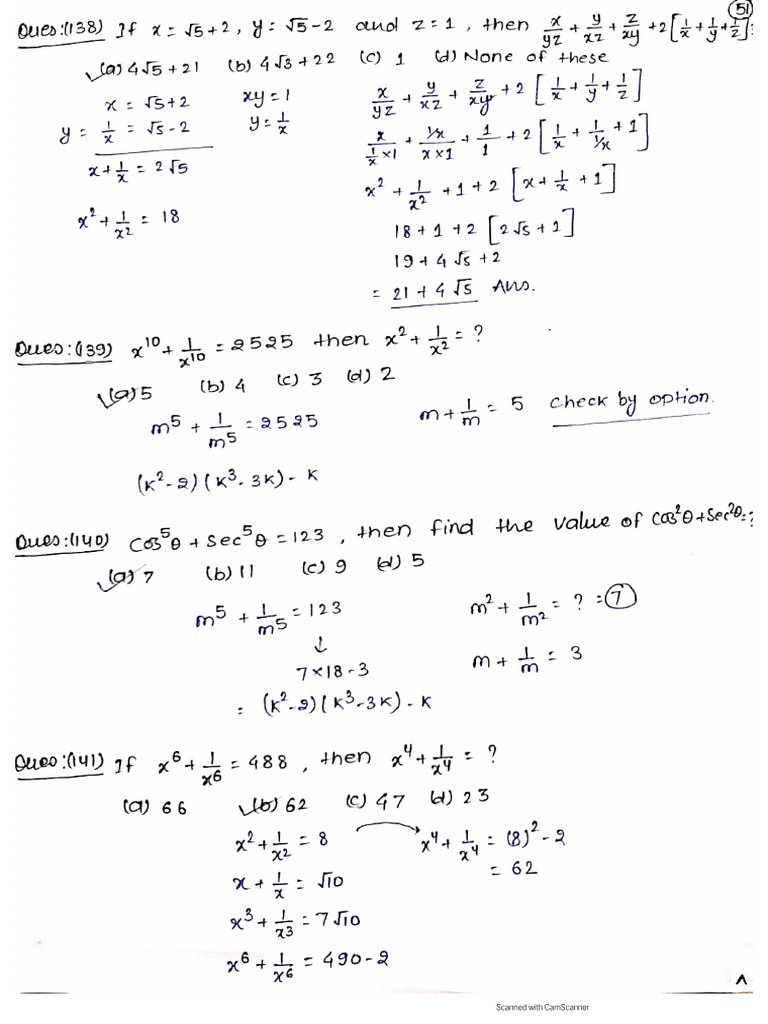 51
Ques:(138) If x = √5+2, y = √5-2 and z=1, then x/yz + y/xz + z/xy + 2[1/x + 1/y + 1/z] =
(a) 4√5+21 (b) 4√3+22 (c) 1 (d) None of these
x = √5+2 xy = 1
y = 1/x = √5-2 y = 1/x
x + 1/x = 2√5
x² + 1/x² = 18
x/yz + y/xz + z/xy + 2[1/x + 1/y + 1/z]
x/(1/x ×1) + (1/x)/(x×1) + 1/1 + 2[1/x + 1/(1/x) + 1]
x² + 1/x² + 1 + 2[x + 1/x + 1]
18 + 1 + 2[2√5 + 1]
19 + 4√5 + 2
= 21 + 4√5 Ans.
Ques:(139) x¹⁰ + 1/x¹⁰ = 2525 then x² + 1/x² = ?
(a) 5 (b) 4 (c) 3 (d) 2
m⁵ + 1/m⁵ = 2525 m + 1/m = 5 check by option.
(K²-2)(K³-3K) - K
Ques:(140) Cos⁵θ + Sec⁵θ = 123, then find the value of Cos²θ + Sec²θ = ?
(a) 7 (b) 11 (c) 9 (d) 5
m⁵ + 1/m⁵ = 123 m² + 1/m² = ? = 7
↓
7×18-3 m + 1/m = 3
= (K²-2)(K³-3K) - K
Ques:(141) If x⁶ + 1/x⁶ = 488, then x⁴ + 1/x⁴ = ?
(a) 66 (b) 62 (c) 47 (d) 23
x² + 1/x² = 8 x⁴ + 1/x⁴ = (8)² - 2
= 62
x + 1/x = √10
x³ + 1/x³ = 7√10
x⁶ + 1/x⁶ = 490-2
Scanned with CamScanner